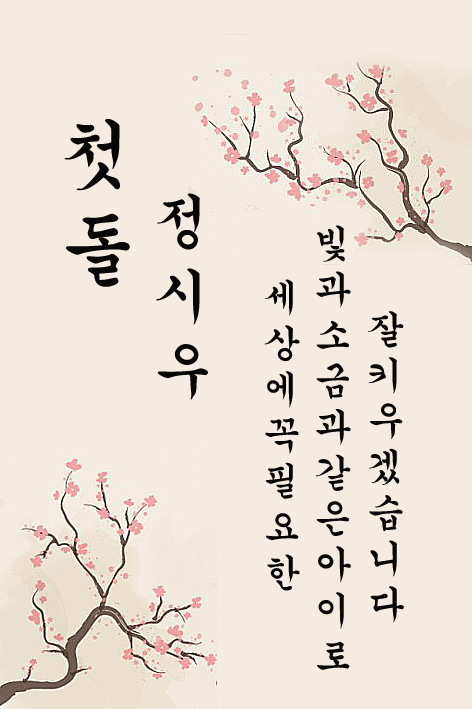 첫돌
정시우
세상에꼭필요한
빛과소금과같은아이로
잘키우겠습니다